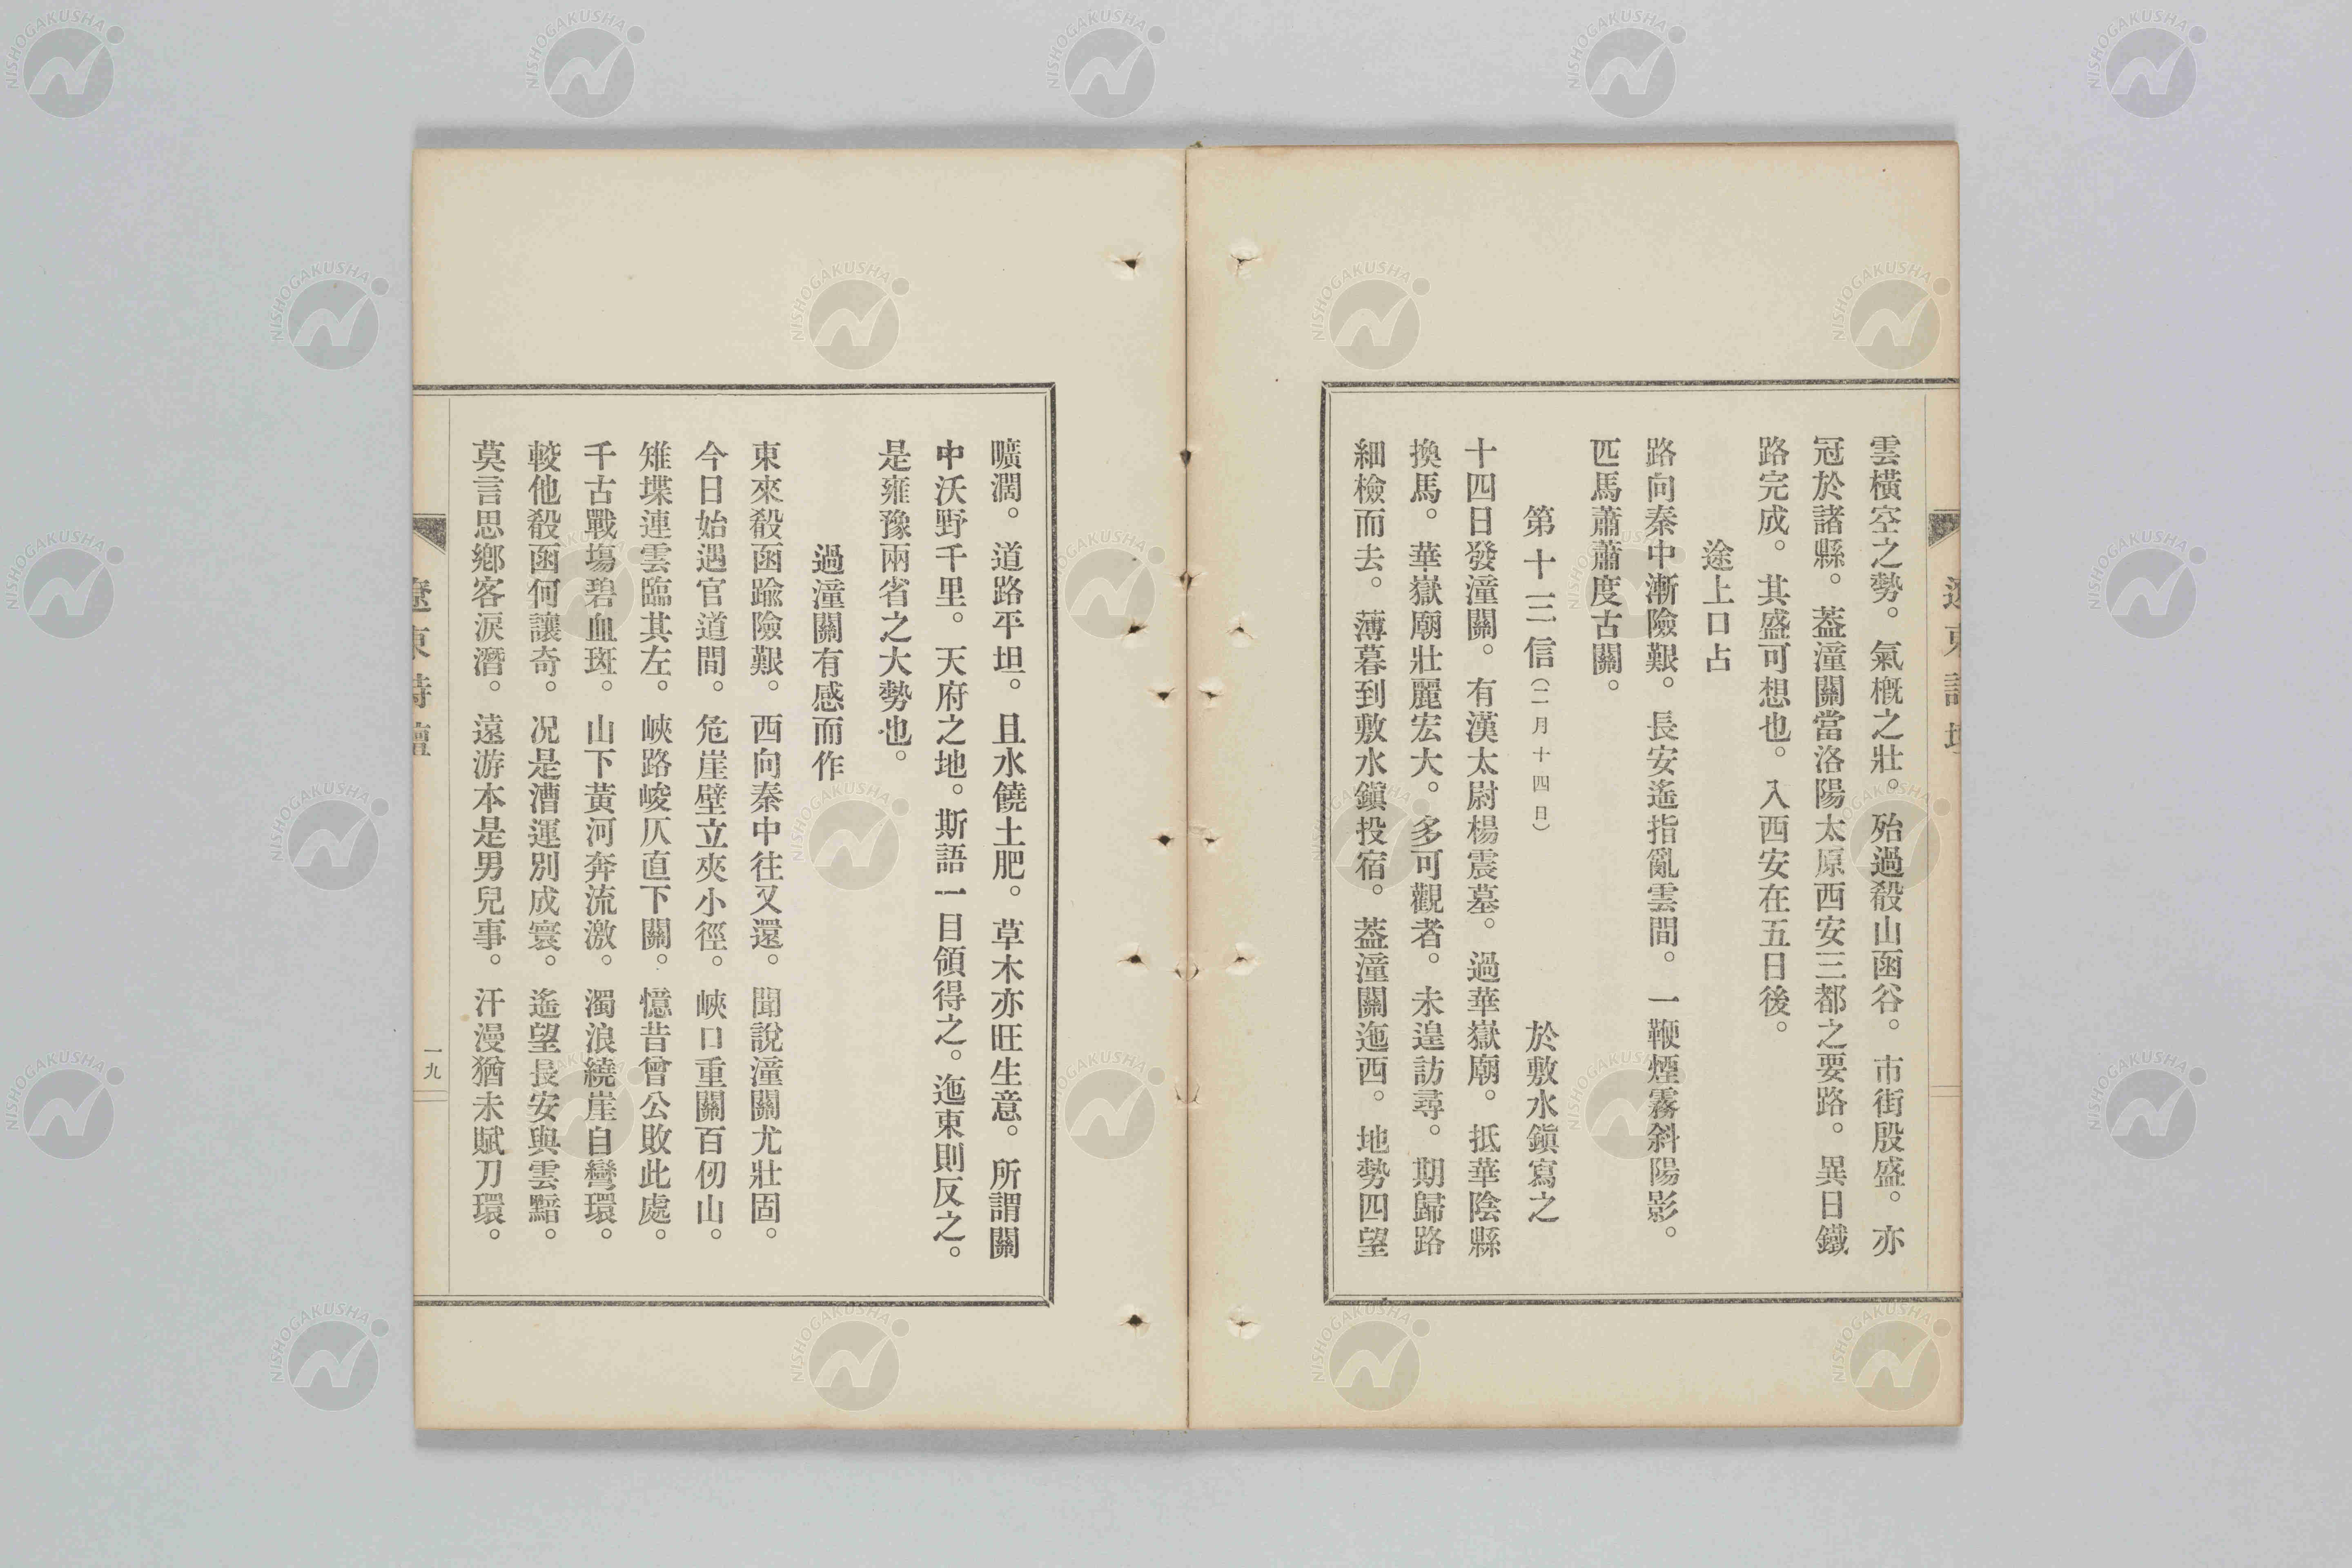 雲橫空之勢。氣槪之壯。殆過殽山函谷。市街殷盛。亦
冠於諸縣。葢潼關當洛陽太原西安三都之要路。異日鐵
路完成。其盛可想也。入西安在五日後。
途上口占
路向秦中漸險艱。長安遙指亂雲間。一鞭煙霧斜陽影。
匹馬蕭蕭度古關。
第十三信(二月十四日)　於敷水鎭寫之
十四日發潼關。有漢太尉楊震墓。過華嶽廟。抵華陰縣
換馬。華嶽廟壯麗宏大。多可觀者。未遑訪尋。期歸路
細檢而去。薄暮到敷水鎭投宿。葢潼關迤西。地勢四望
曠濶。道路平坦。且水饒土肥。草木亦旺生意。所謂關
中沃野千里。天府之地。斯語一目領得之。迤東則反之。
是雍豫兩省之大勢也。
過潼關有感而作
東來殽函踰險艱。西向秦中往又還。聞說潼關尤壯固。
今日始遇官道間。危崖壁立夾小徑。峽口重關百仞山。
雉堞連雲臨其左。峽路峻仄直下關。憶昔曾公敗此處。
千古戰塲碧血斑。山下黃河奔流激。濁浪繞崖自彎環。
較他殽函何讓奇。况是漕運別成寰。遙望長安與雲黯。
莫言思鄕客淚潛。遠游本是男兒事。汗漫猶未賦刀環。
遼東詩壇
一九
NISHOGAKUSHA